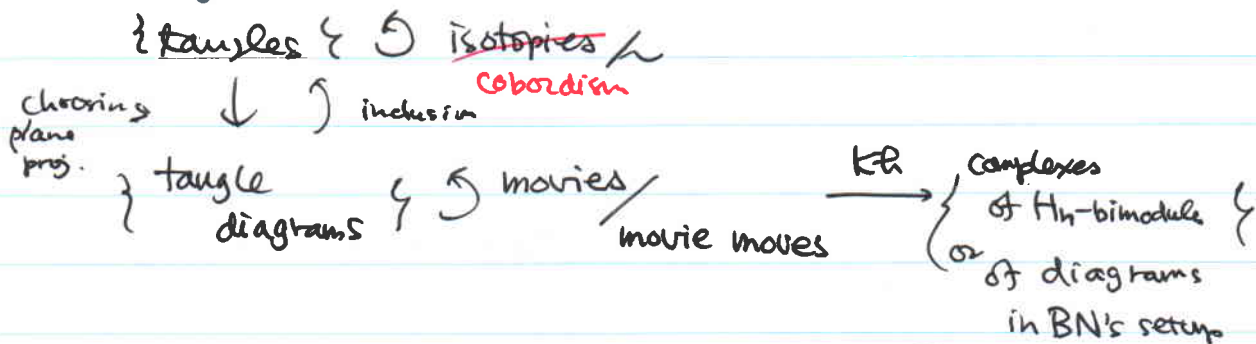 { tangles } ↺ isotopies / ~
cobordism
choosing plane proj. ↓ ⤴ inclusion
{ tangle diagrams } ↺ movies / movie moves
Kh →
{ complexes
of Hn-bimodule
or of diagrams
in BN's setup }